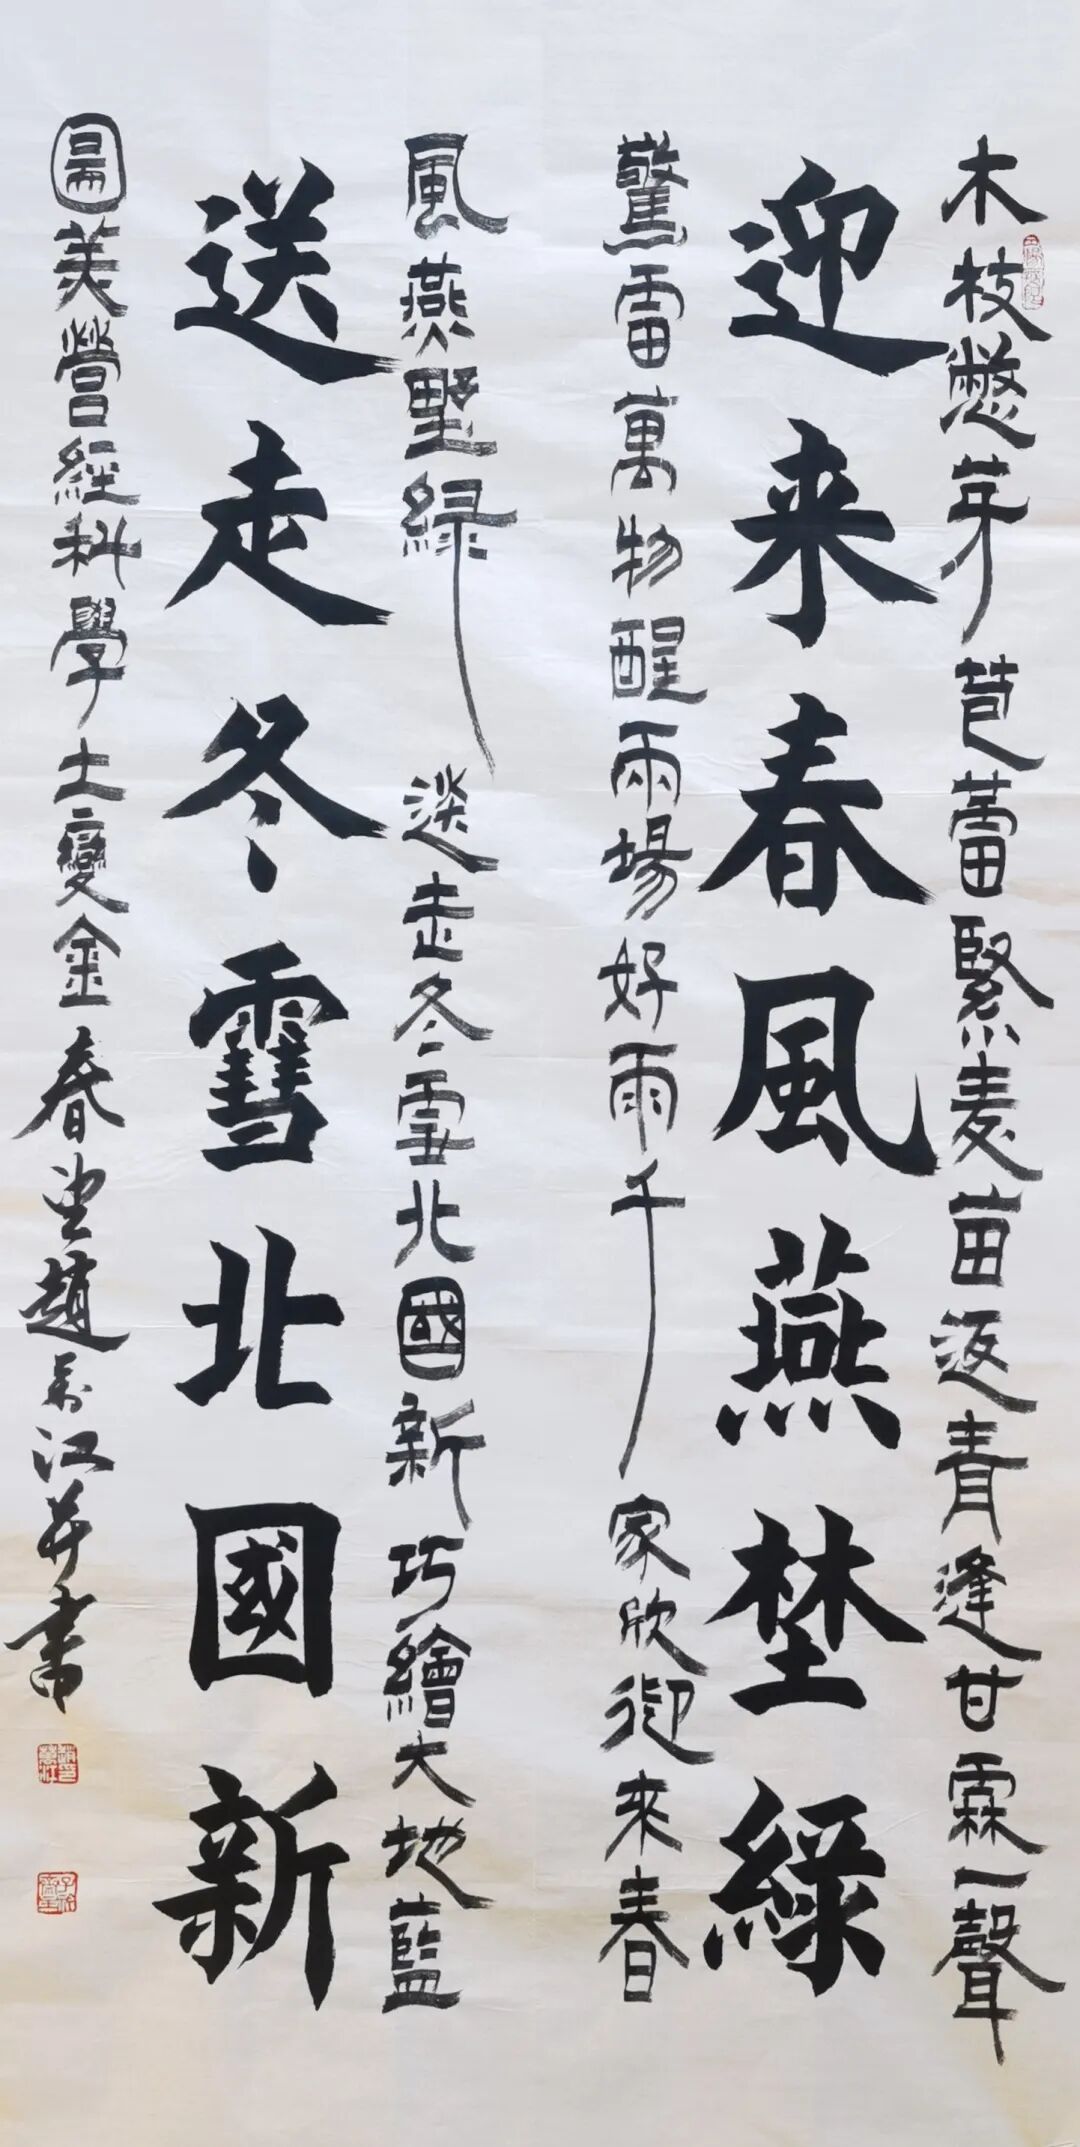 木枝憋芽苞蕾緊麦亩返青逢甘霖一聲
迎来春風燕埜緑
驚雷萬物醒兩場好雨千家欣迎來春
風燕墅緑送走冬雪北國新巧繪大地藍
送走冬雪北國新
圖美營經科學土變金春望趙萬江并書